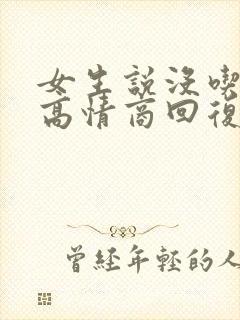 女生說沒喫
高情商回復
曾經年輕的人